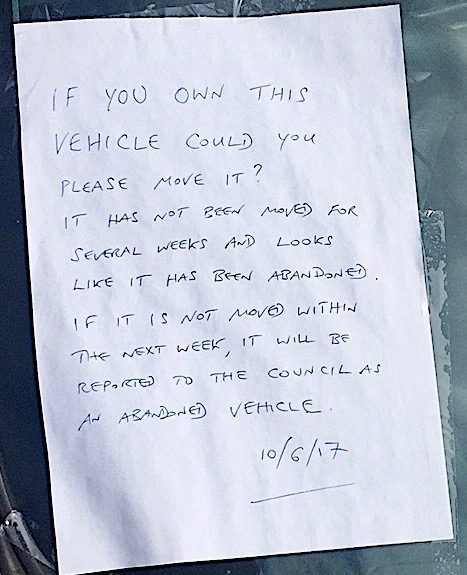 IF YOU OWN THIS
VEHICLE COULD YOU
PLEASE MOVE IT?
IT HAS NOT BEEN MOVED FOR
SEVERAL WEEKS AND LOOKS
LIKE IT HAS BEEN ABANDONED.
IF IT IS NOT MOVED WITHIN
THE NEXT WEEK, IT WILL BE
REPORTED TO THE COUNCIL AS
AN ABANDONED VEHICLE.
10/6/17